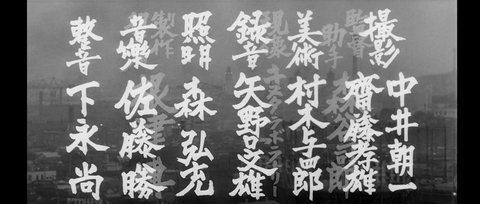 撮影
中井朝一
齋藤孝雄
美術
村木与四郎
録音
矢野口文雄
照明
森弘充
音樂
佐藤勝
整音
下永尚
監督助手